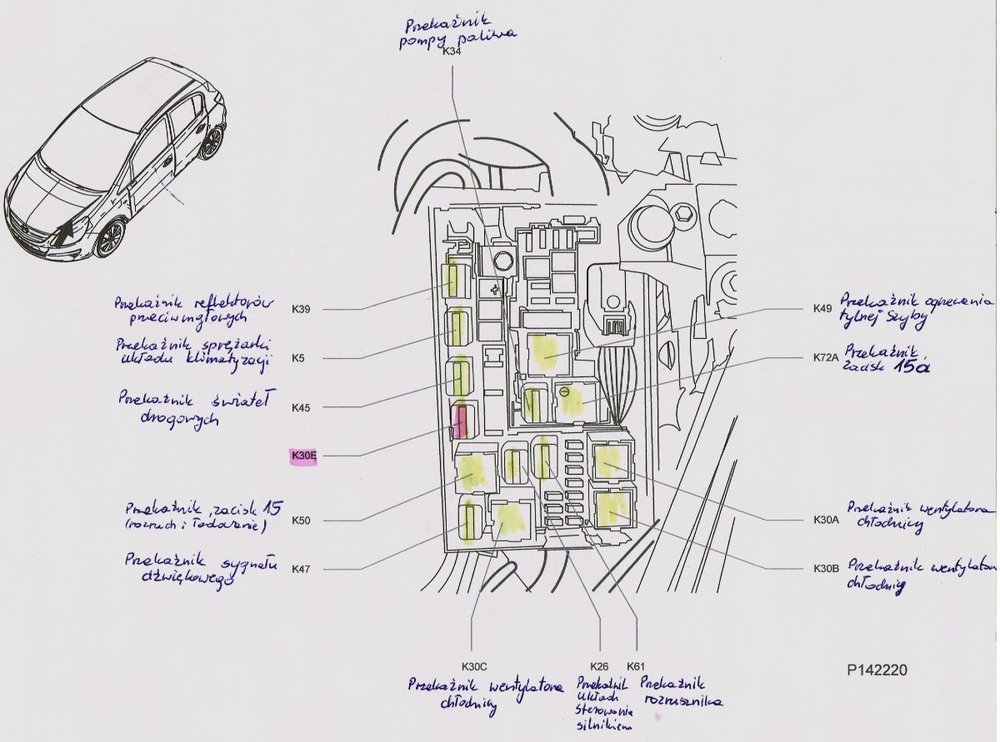 Przekaźnik
pompy paliwa
K34
Przekaźnik reflektorów
przeciwmgłowych
K39
Przekaźnik sprężarki
układu klimatyzacji
K5
Przekaźnik świateł
drogowych
K45
K30E
Przekaźnik, zacisk 15
(rozruch i ładowanie)
K50
Przekaźnik sygnału
dźwiękowego
K47
K49
Przekaźnik ogrzewania
tylnej szyby
K72A
Przekaźnik
Zacisk 15a
K30A
Przekaźnik wentylatora
chłodnicy
K30B
Przekaźnik wentylatora
chłodnicy
K30C
Przekaźnik wentylatora
chłodnicy
K26
Przekaźnik
układu
sterowania
silnikiem
K61
Przekaźnik
rozrusznika
P142220